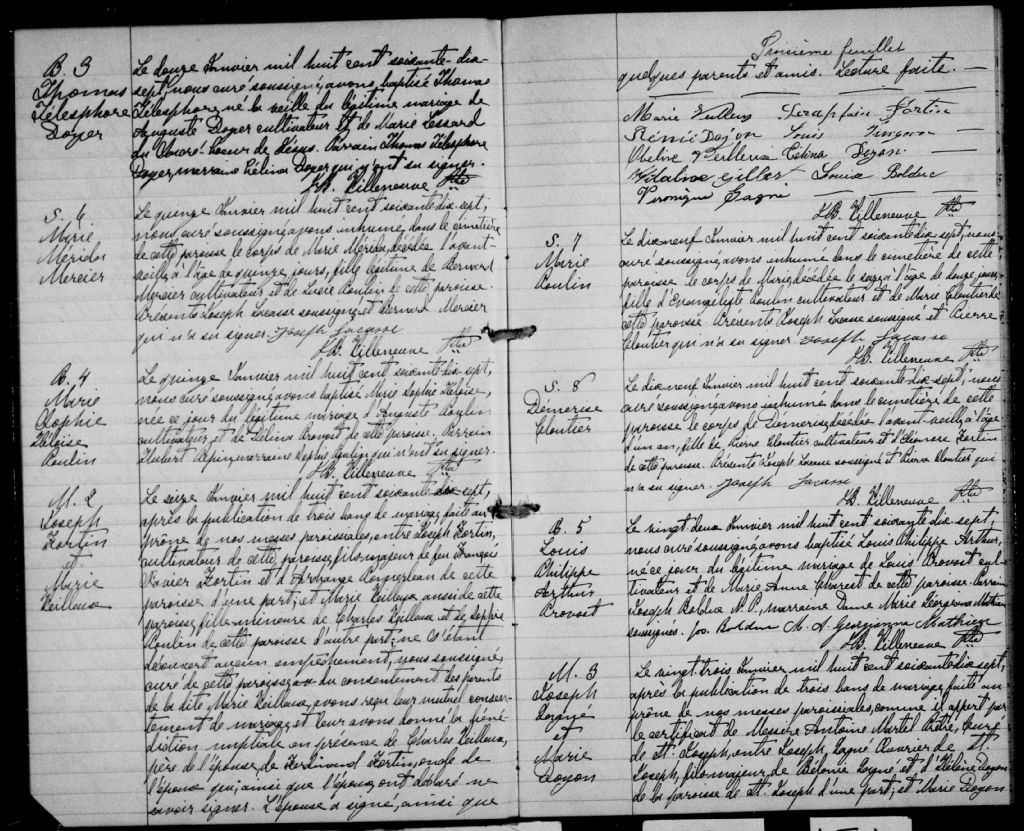 B. 3
Thomas
Télesphore
Doyer
Le douze Janvier mil huit cent soixante-dix-
sept, nous curé soussigné, avons baptisé Thomas
Télesphore, né la veille du légitime mariage de
Auguste Doyer cultivateur et de Marie Lessard
du Sacré-Coeur de Jésus. Parrain Thomas Télesphore
Doyer, marraine Célina Doyer qui n'ont su signer.
J.B. Villeneuve Ptre
S. 6
Marie
Mérida
Mercier
Le quinze Janvier mil huit cent soixante-dix-sept,
nous curé soussigné, avons inhumé dans le cimetière
de cette paroisse le corps de Marie Mérida, décédée l'avant-
veille, à l'âge de quinze jours, fille légitime de Bernard
Mercier cultivateur et de Lucie Poulin de cette paroisse.
Présents Joseph Lacasse soussigné et Bernard Mercier
qui n'a su signer. Joseph Lacasse
J.B. Villeneuve Ptre
B. 4
Marie
Sophie
Héloïse
Poulin
Le quinze Janvier mil huit cent soixante-dix-sept,
nous curé soussigné, avons baptisé Marie Sophie Héloïse,
née ce jour du légitime mariage d'Auguste Poulin
cultivateur et de Célina Provost de cette paroisse. Parrain
Hubert Pépin, marraine Sophie Poulin qui n'ont su signer.
J.B. Villeneuve Ptre
M. 2
Joseph
Fortin
et
Marie
Veilleux
Le seize Janvier mil huit cent soixante-dix-sept,
après la publication de trois bans de mariage, faite au
prône de nos messes paroissiales, entre Joseph Fortin,
cultivateur de cette paroisse, fils majeur de feu François
Xavier Fortin et d'Archange Pomerleau de cette
paroisse d'une part; et Marie Veilleux aussi de cette
paroisse, fille mineure de Charles Veilleux et de Sophie
Poulin de cette paroisse d'autre part; ne s'étant
découvert aucun empêchement, nous soussigné,
curé de cette paroisse, vu du consentement des parents
de la dite Marie Veilleux, avons reçu leur mutuel consen-
tement de mariage, et leur avons donné la béné-
diction nuptiale en présence de Charles Veilleux,
père de l'épouse, de Ferdinand Fortin, oncle de
l'époux qui, ainsi que l'époux, ont déclaré ne
savoir signer. L'épouse a signé, ainsi que
Troisième feuillet
quelques parents et amis. Lecture faite. —
Marie Seraphin Fortin
Rémie Dojon Louis
Célina Doyon
Gilbert Louis Bolduc
Véronique Gagné
J.B. Villeneuve Ptre
S. 7
Marie
Poulin
Le dix-neuf Janvier mil huit cent soixante-dix-sept, nous
curé soussigné, avons inhumé dans le cimetière de cette
paroisse le corps de Marie, décédée le seize, à l'âge de douze jours,
fille d'Evangéliste Poulin cultivateur et de Marie Cloutier de
cette paroisse. Présents Joseph Lacasse soussigné et Pierre
Cloutier qui n'a su signer. Joseph Lacasse
J.B. Villeneuve Ptre
S. 8
Démerise
Cloutier
Le dix-neuf Janvier mil huit cent soixante-dix-sept, nous
curé soussigné, avons inhumé dans le cimetière de cette
paroisse le corps de Démerise, décédée l'avant-veille, à l'âge
d'un an, fille de Pierre Cloutier cultivateur et d'Honore Fortin
de cette paroisse. Présents Joseph Lacasse soussigné et Pierre Cloutier qui
n'a su signer. Joseph Lacasse
J.B. Villeneuve Ptre
B. 5
Louis
Philippe
Arthur
Provost
Le vingt-deux Janvier mil huit cent soixante-dix-sept,
nous curé soussigné, avons baptisé Louis Philippe Arthur,
né ce jour du légitime mariage de Louis Provost cul-
tivateur et de Marie Anne Charest de cette paroisse. Parrain
Joseph Bolduc N.P., marraine Dame Marie Georgianna Mathieu
soussignés. Jos. Bolduc M. A. Georgianna Mathieu
J.B. Villeneuve Ptre
M. 3
Joseph
Gagné
et
Marie
Doyon
Le vingt-trois Janvier mil huit cent soixante-dix-sept,
après la publication de trois bans de mariage, faite au
prône de nos messes paroissiales, comme il appert par
le certificat de Messire Antoine Martel Prêtre, Curé
de St. Joseph, entre Joseph Gagné Ouvrier de St.
Joseph, fils majeur, de Bélonie Gagné et d'Hélène Doyon
de la paroisse de St. Joseph d'une part; et Marie Doyon